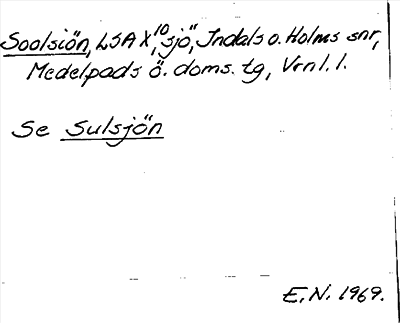 Soolsiön, LSA X¹⁰, "sjö", Indals o. Holms snr,
Medelpads ö. doms. tg, Vrnl. l.
Se Sulsjön
E.N. 1969.